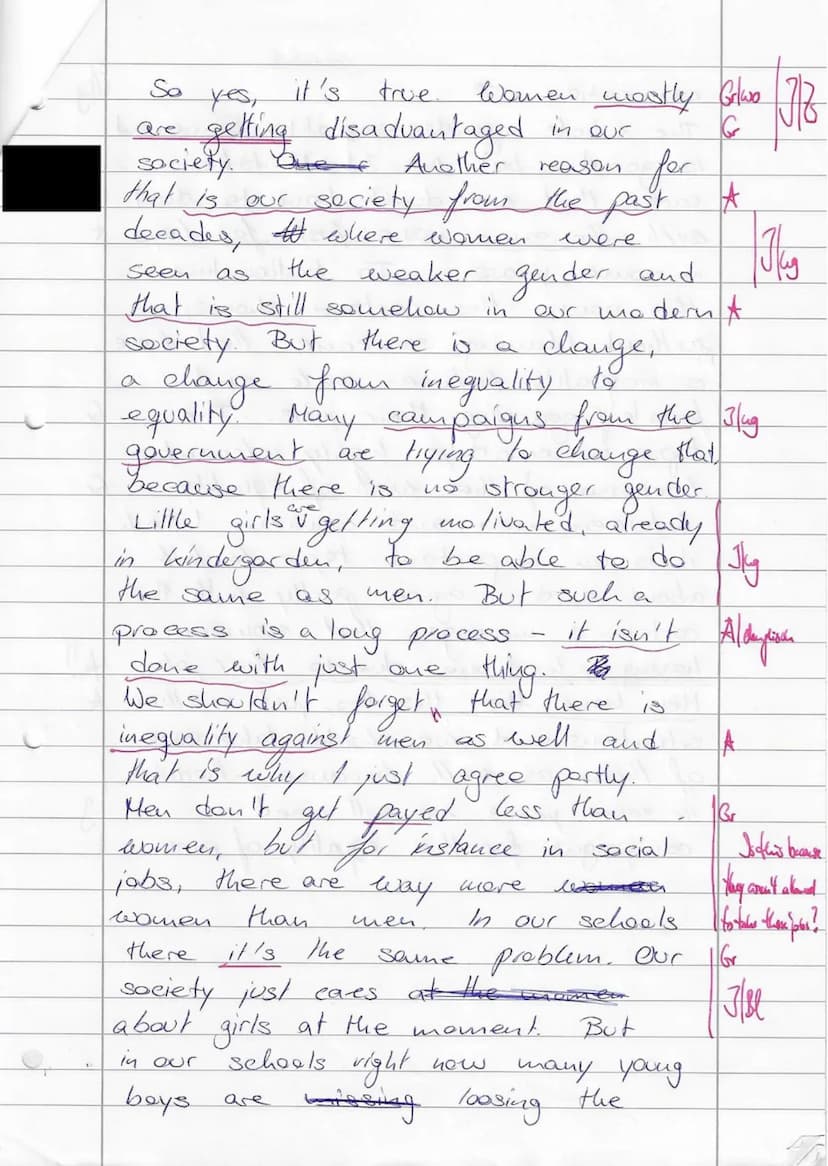 So yes, it's true. Women mostly Gr/wo J/Zs
are getting disadvantaged in our G
society. Another reason for
that is our society from the past A
decades, where women were
seen as the weaker gender and J/ug
that is still somehow in our modern A
society. But there is a change,
a change from inequality to
equality. Many campaigns from the J/ug
government are trying to change that,
because there is no stronger gender.
Little girls are getting motivated, already
in kindergarden, to be able to do J/ug
the same as men. But such a
process is a long process - it isn't A/denglisch
done with just one thing.
We shouldn't forget, that there is
inequality against men as well and A
that is why I just agree partly.
Men don't get payed less than Gr
women, but for instance in social Is this because
jobs, there are way more they aren't allowed
women than men. In our schools to take these jobs?
there it's the same problem. Our Gr
society just cares J/Bl
about girls at the moment. But
in our schools right now many young
boys are loosing the